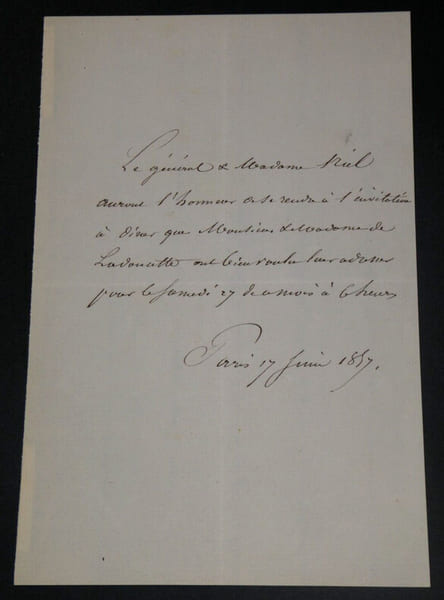 Le général & Madame Niel
auront l'honneur de se rendre à l'invitation
à diner que Monsieur & Madame de
Ladoucette ont bien voulu leur adresser
pour le Samedi 27 de ce mois à 6 heures
Paris 17 Juin 1857.